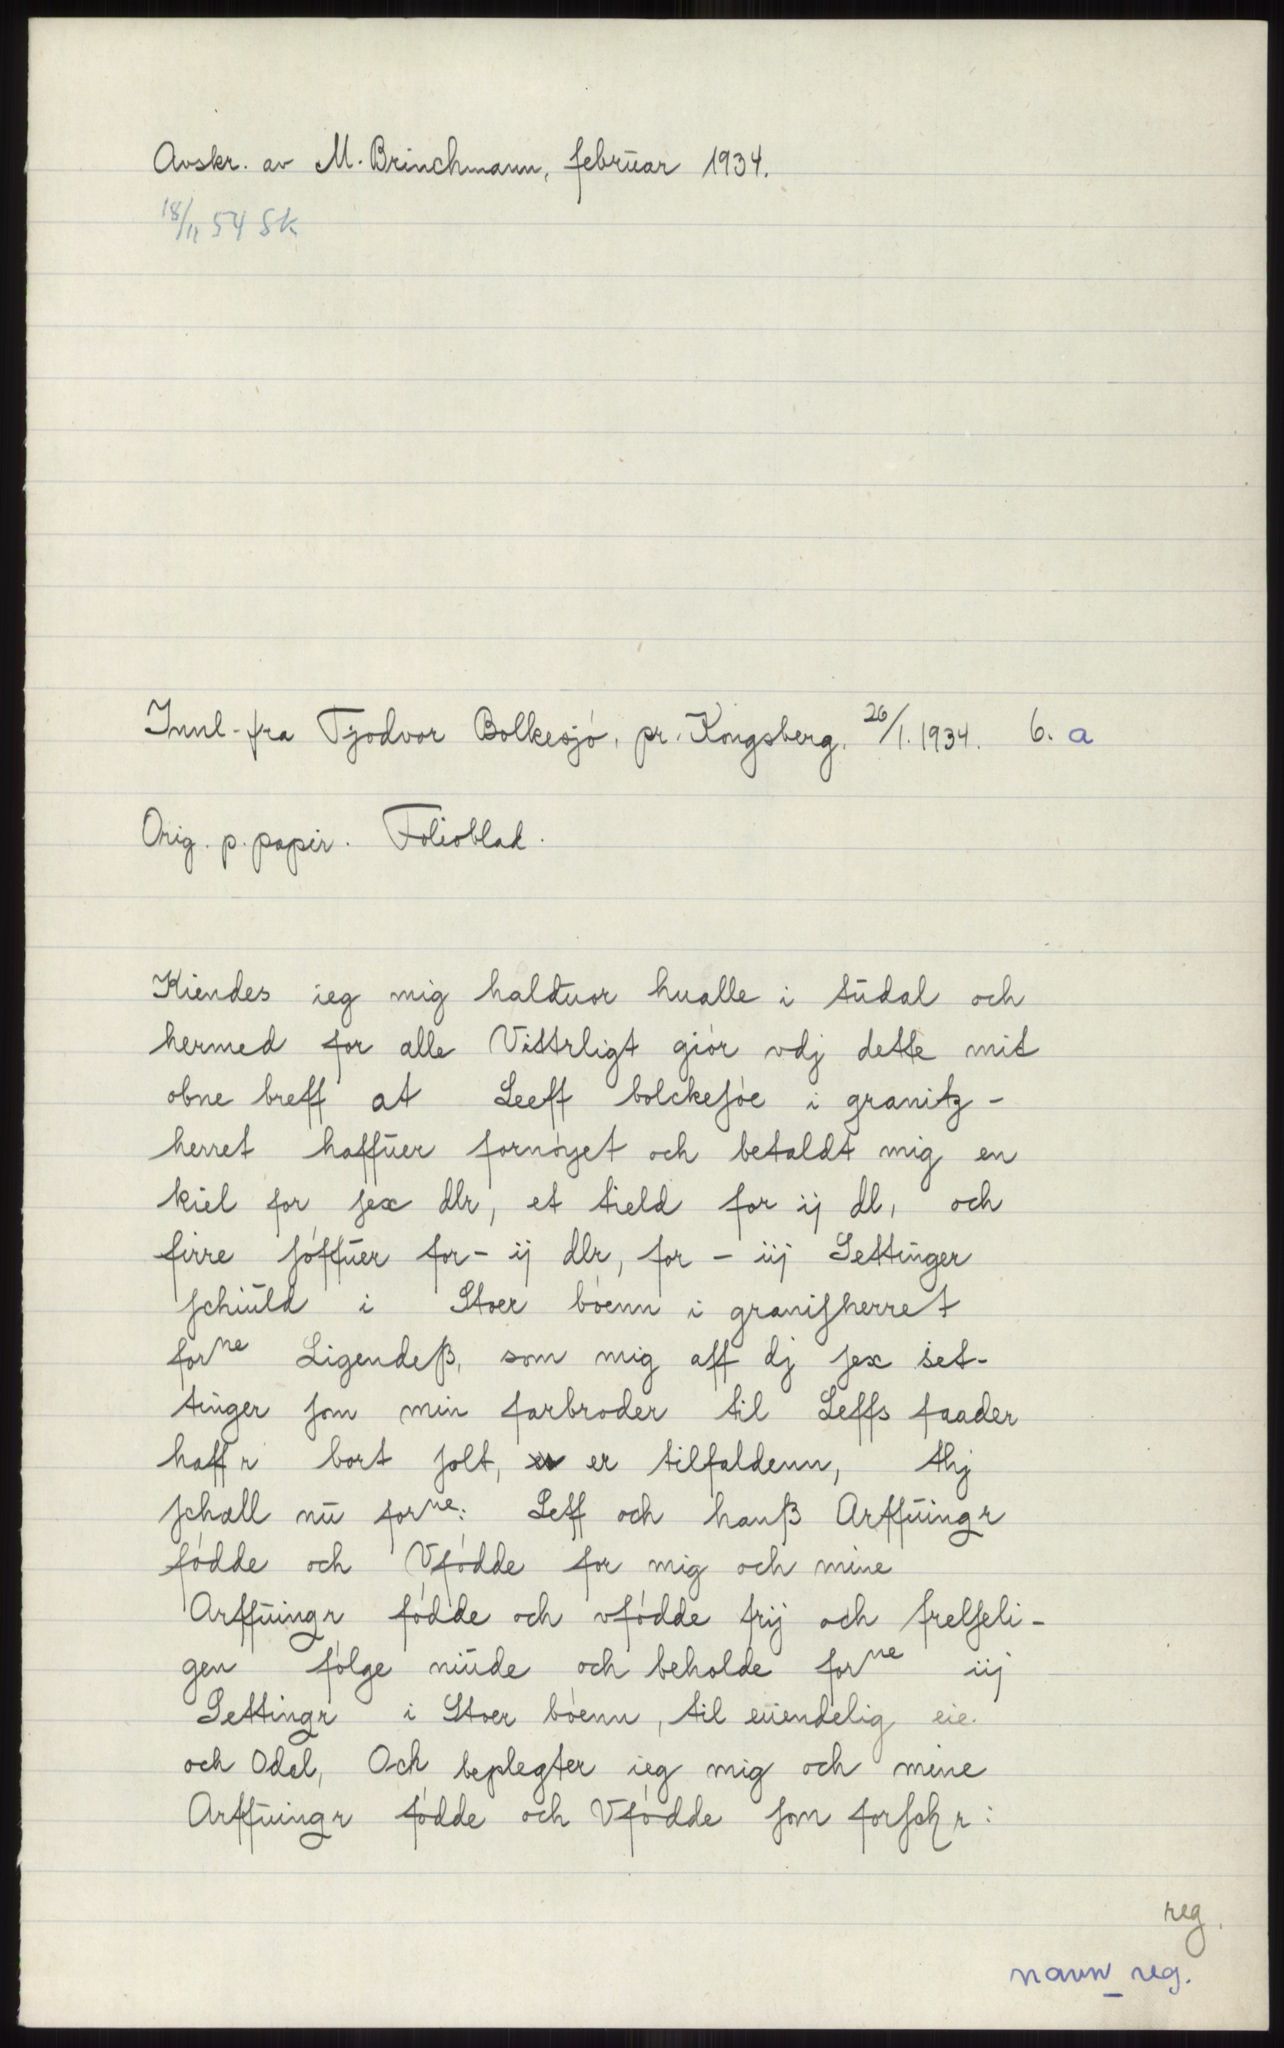 Avskr. av M. Brinchmann, februar 1934.
18/11 54 Sk
Innl. fra Tjodvor Bolkesjø, pr. Kongsberg, 26/1. 1934. 6. a
Orig. p. papir. Folioblad.
Kiendes ieg mig halduor hualle i tudal och
hermed for alle Vittrligt giör vdj dette mit
obne breff at Leeff bolckeſöe i granitz-
herret haffuer fornöyet och betaldt mig en
kiel for ſex dlr, et tield for ij dl, och
firre ſöffuer for - ij dlr, for - iij Settinger
ſchiuld i Stoer böenn i graniſherret
forne Ligendeß, som mig aff dj ſex set-
tinger ſom min farbroder til Leffs faader
haffr bort ſolt, er tilfaldenn, thj
ſchall nu forne: Leff och hanß Arffuingr
födde och Vfödde for mig och mine
Arffuingr födde och vfödde frij och frelſeli-
gen fölge niude och beholde forne iij
Settingr i Stoer böenn, til euendelig eie
och Odel, Och beplegter ieg mig och mine
Arffuingr födde och Vfödde ſom forſchr:
reg.
navn_reg.